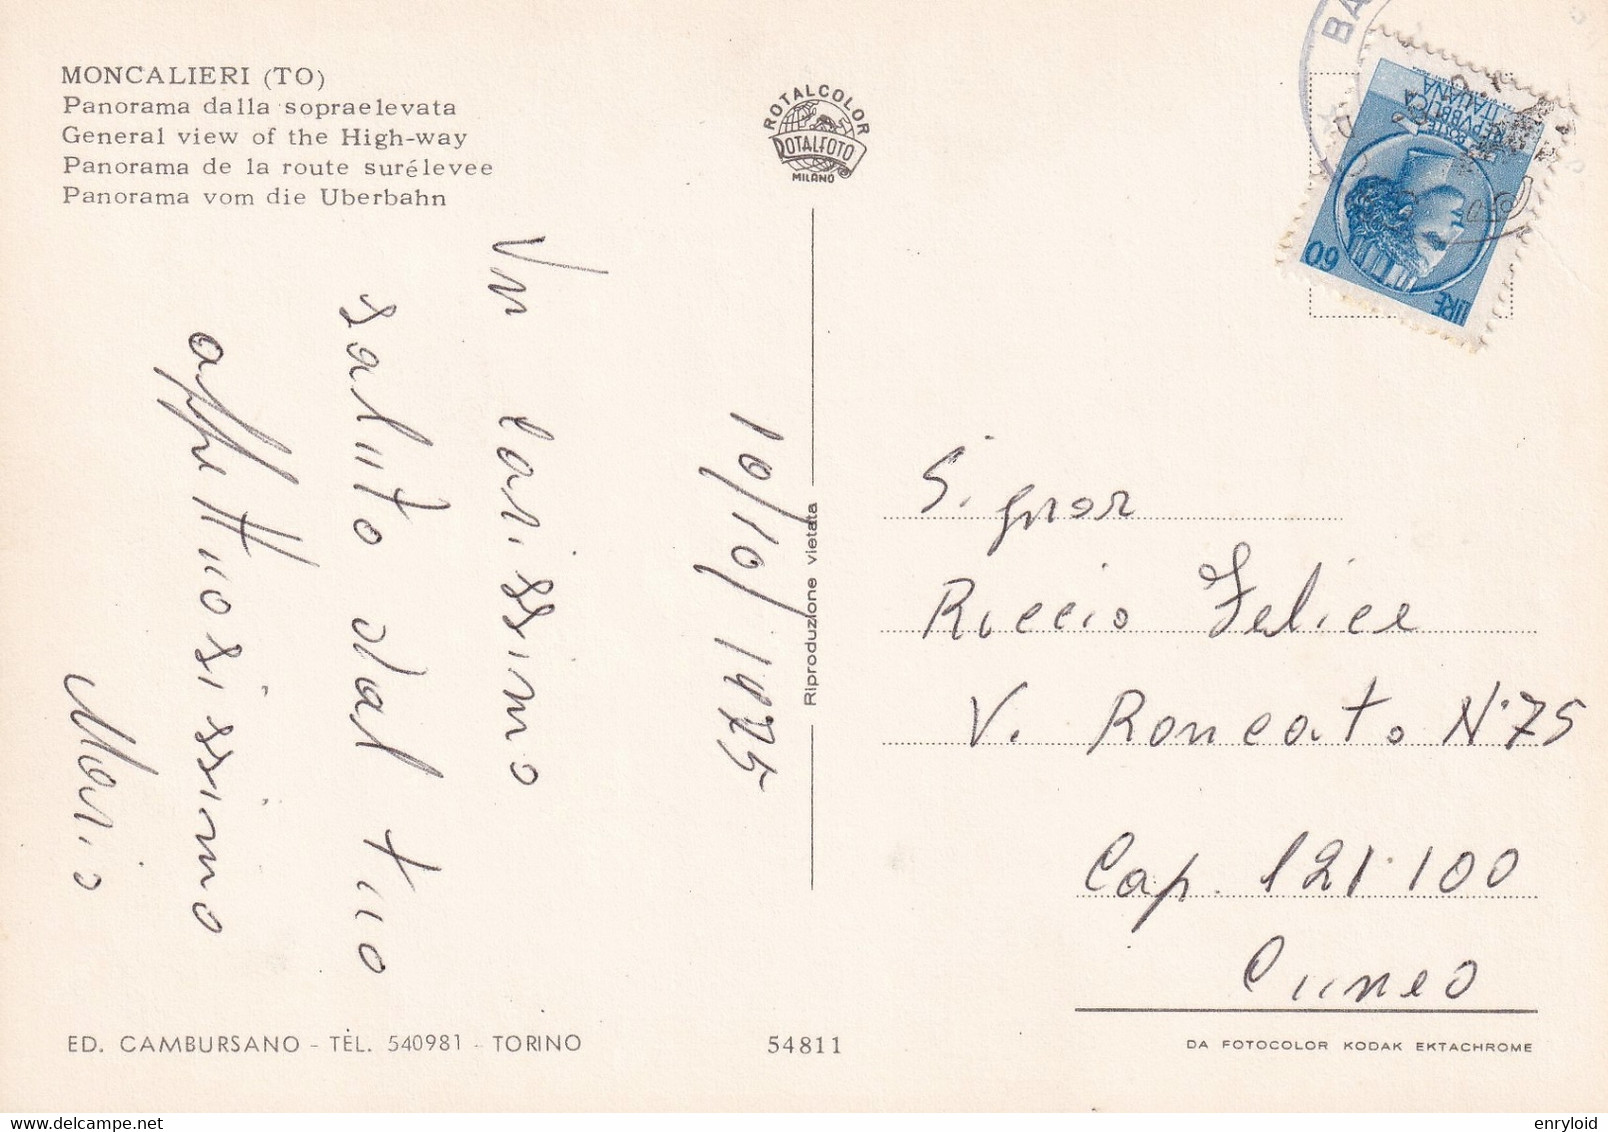 MONCALIERI (TO)
Panorama dalla sopraelevata
General view of the High-way
Panorama de la route surélevee
Panorama vom die Uberbahn
ROTALCOLOR
ROTALFOTO
MILANO
BA
POSTE
REPVBBLICA
ITALIANA
LIRE 60
Un carissimo
saluto dal tuo
affettuosissimo
Mario
10/10/1975
Riproduzione vietata
Signor
Riccio Felice
V. Roncato N° 75
Cap. 121100
Cuneo
ED. CAMBURSANO - TÈL. 540981 - TORINO
54811
DA FOTOCOLOR KODAK EKTACHROME
enryloid